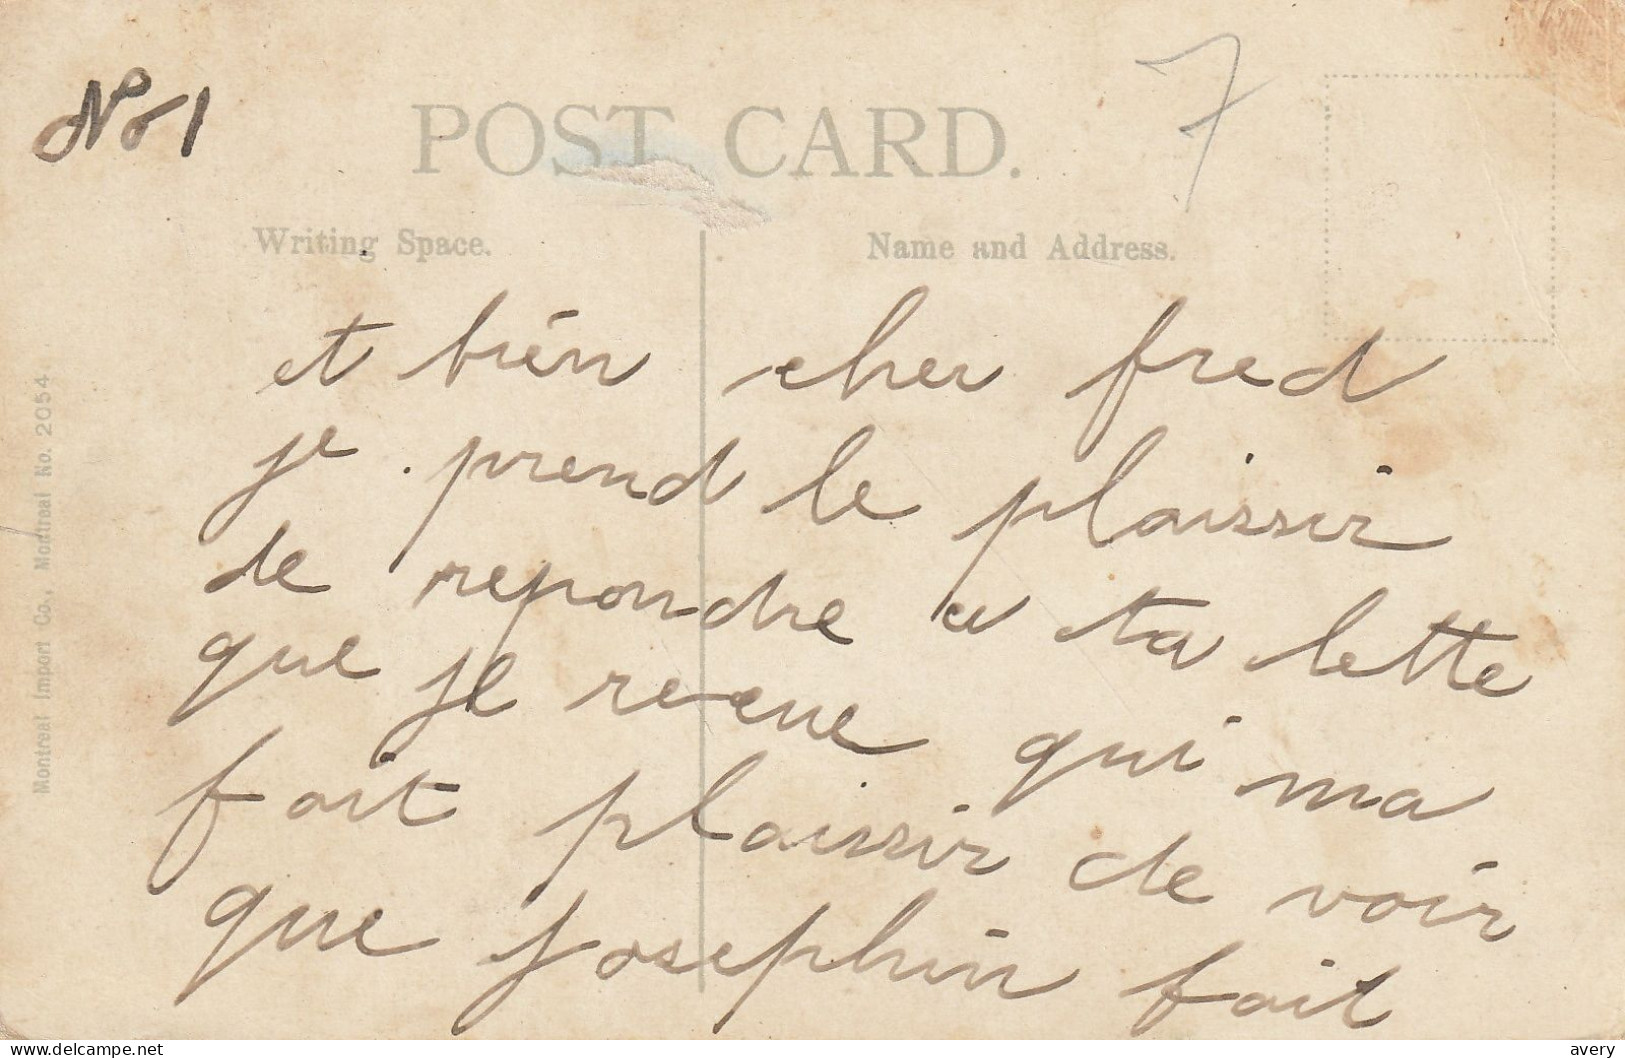 No 1
7
POST CARD.
Writing Space.
Name and Address.
et bien cher fred
je prend le plaissir
de repondre a ta lette
que je reçue qui ma
fait plaissir de voir
que Josephin fait
Montreal Import Co., Montreal No. 2054
delcampe.net
avery